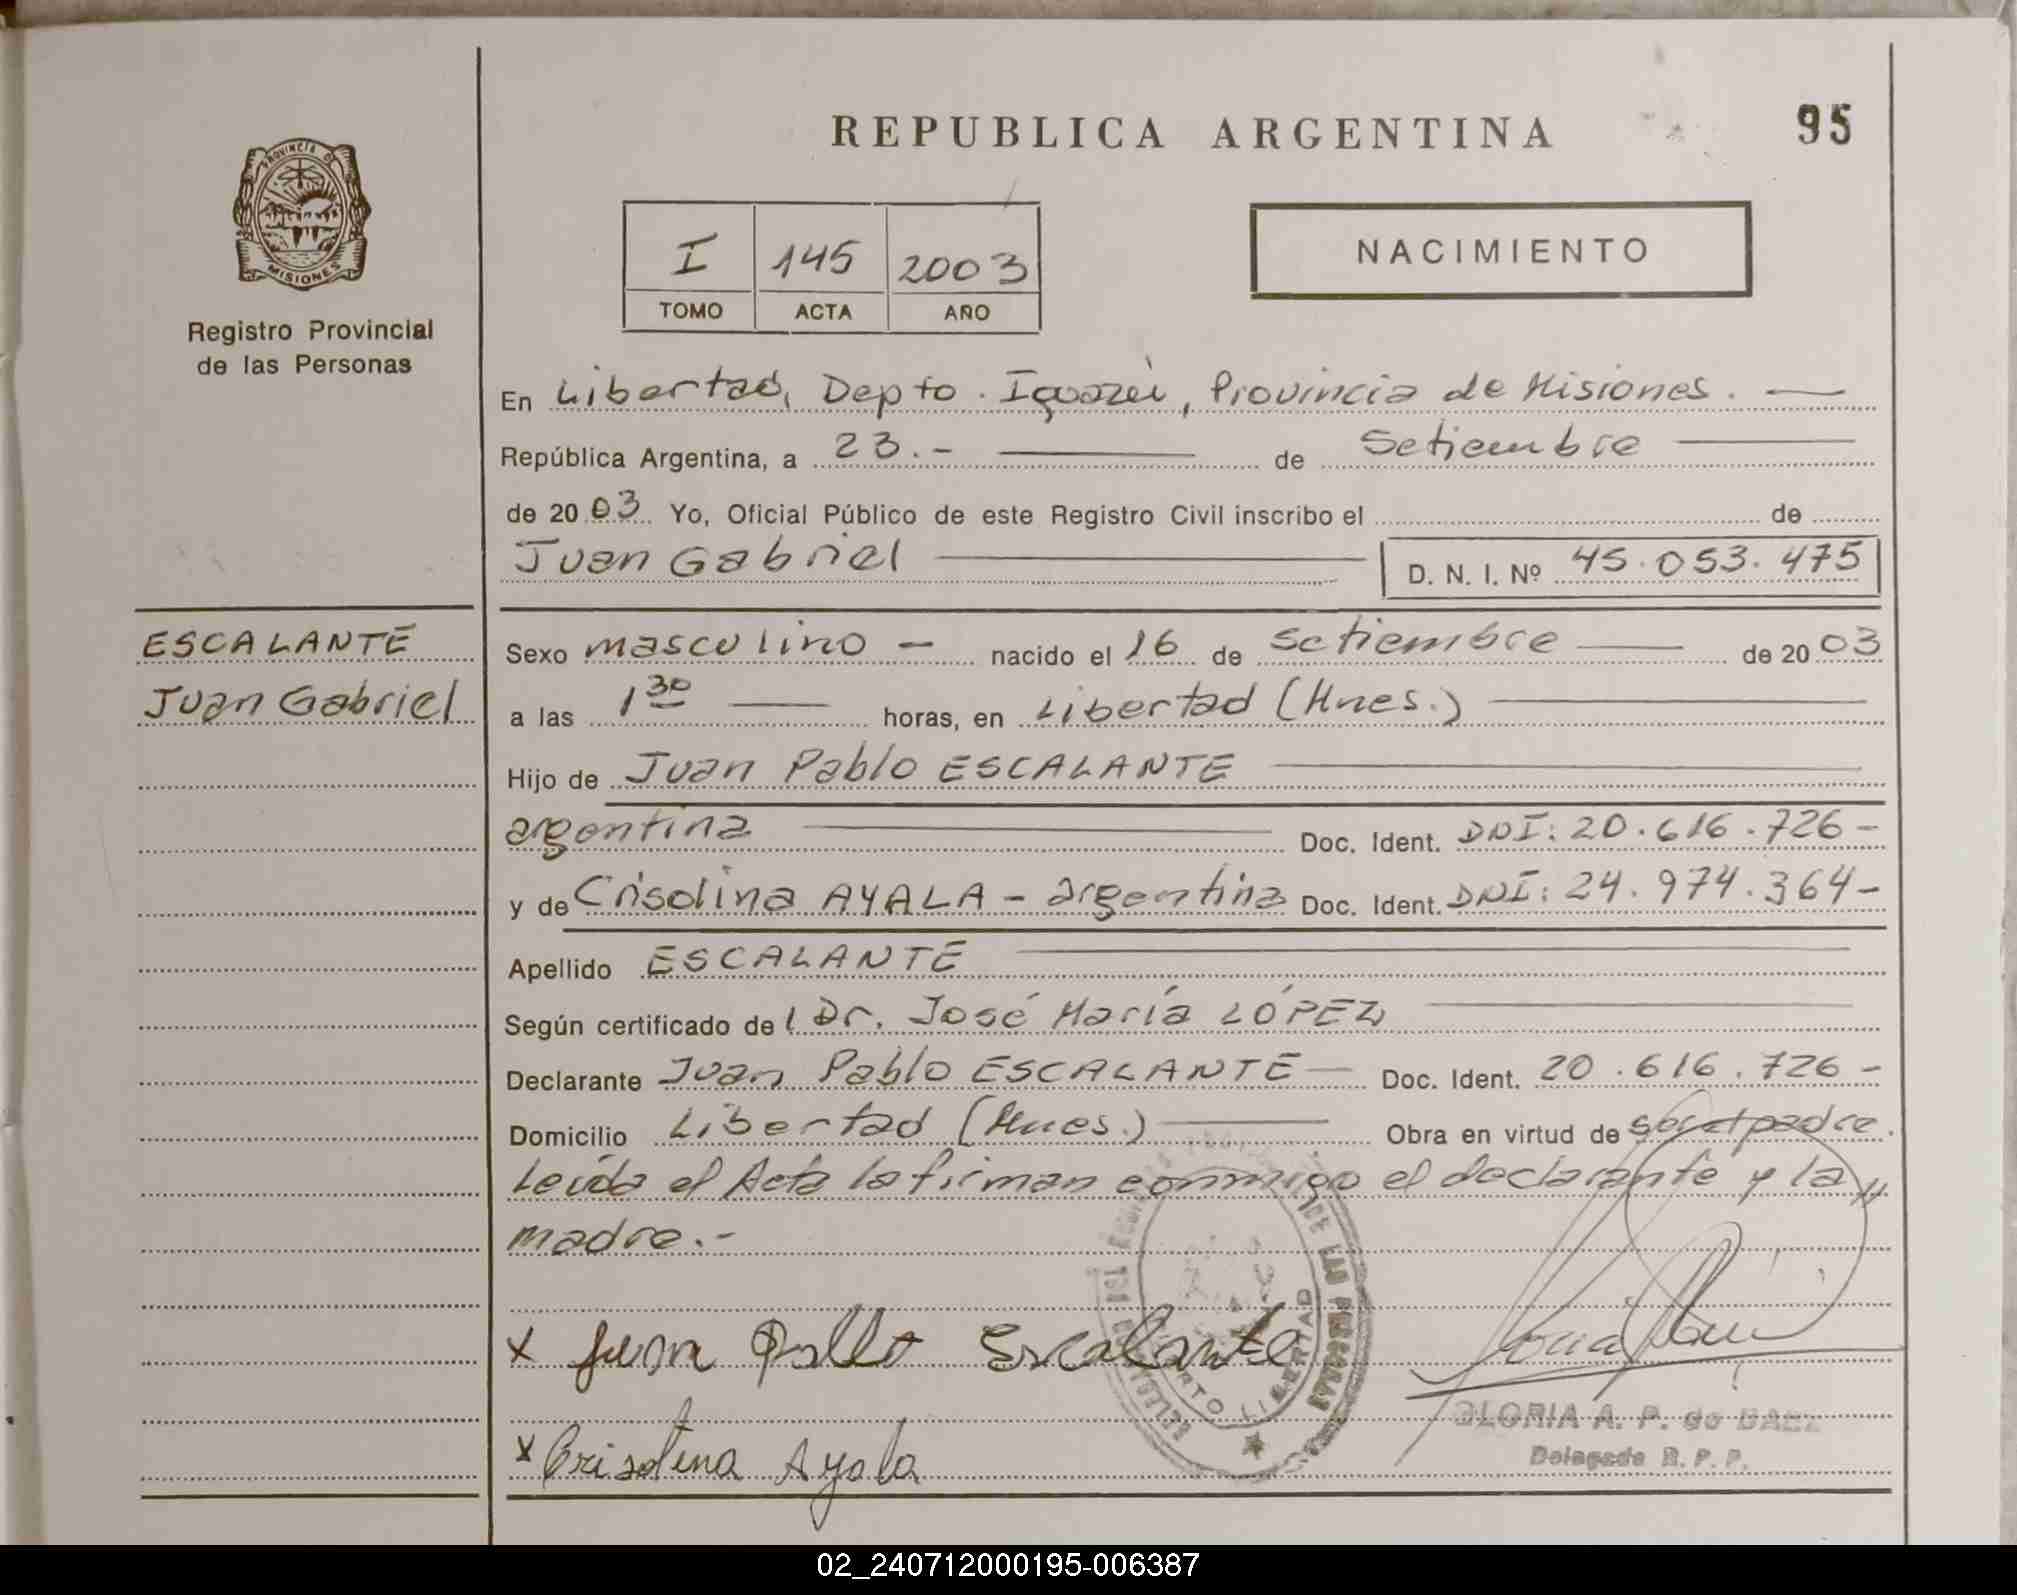 REPUBLICA ARGENTINA
95
PROVINCIA DE
MISIONES
Registro Provincial
de las Personas
I 145 2003
TOMO ACTA AÑO
NACIMIENTO
En Libertad, Depto. Iguazú, Provincia de Misiones.
República Argentina, a 23.- de Setiembre
de 2003 Yo, Oficial Público de este Registro Civil inscribo el de
Juan Gabriel D. N. I. Nº 45.053.475
ESCALANTE
Juan Gabriel
Sexo masculino - nacido el 16 de setiembre de 2003
a las 1 30 horas, en Libertad (Mnes.)
Hijo de Juan Pablo ESCALANTE
argentina Doc. Ident. DNI: 20.616.726-
y de Crisolina AYALA - argentina Doc. Ident. DNI: 24.974.364-
Apellido ESCALANTE
Según certificado de l Dr. José María LÓPEZ
Declarante Juan Pablo ESCALANTE Doc. Ident. 20.616.726-
Domicilio Libertad (Mnes.) Obra en virtud de padre.
Leída el Acta la firman conmigo el declarante y la
madre.-
x Juan Pablo Escalante
x Crisolina Ayala
PUERTO LIBERTAD
DE LAS PERSONAS
GLORIA A. P. de BAEZ
Delegada R. P. P.
02_240712000195-006387